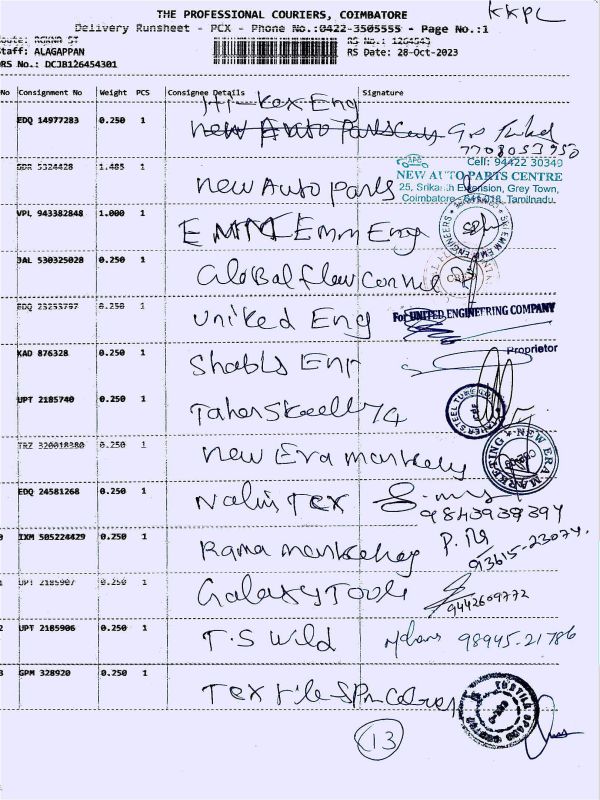 KKPL
THE PROFESSIONAL COURIERS, COIMBATORE
Delivery Runsheet - PCX - Phone No.:0422-3505555 - Page No.:1
Staff: ALAGAPPAN
RS No.: 1264543
RS Date: 28-Oct-2023
DRS No.: DCJB126454301
No Consignment No Weight PCS Consignee Details Signature
Hi-Kex Eng
EDQ 14977283 0.250 1 New Auto Parts
7708053950
GDR 5324428 1.485 1 New Auto parts
Cell: 94422 30349
NEW AUTO PARTS CENTRE
25, Srikanth Extension, Grey Town,
Coimbatore - 641 018. Tamilnadu.
VPL 943382848 1.000 1 EMM Emm Eng
JAL 530325028 0.250 1 Global flow
EDQ 23253797 0.250 1 United Eng
For UNITED ENGINEERING COMPANY
Proprietor
KAD 876328 0.250 1
UPT 2185740 0.250 1 Taher
TRZ 320018380 0.250 1 New Era
NEW ERA MARKETING
EDQ 24581268 0.250 1 Tex
9843939394
IXM 505224429 0.250 1 Rama
93615-23074.
UPT 2185907 0.250 1 Galaxy Tools
9442609772
2 UPT 2185906 0.250 1 T.S Wild
98945-21786
3 GPM 328920 0.250 1 Textile
13